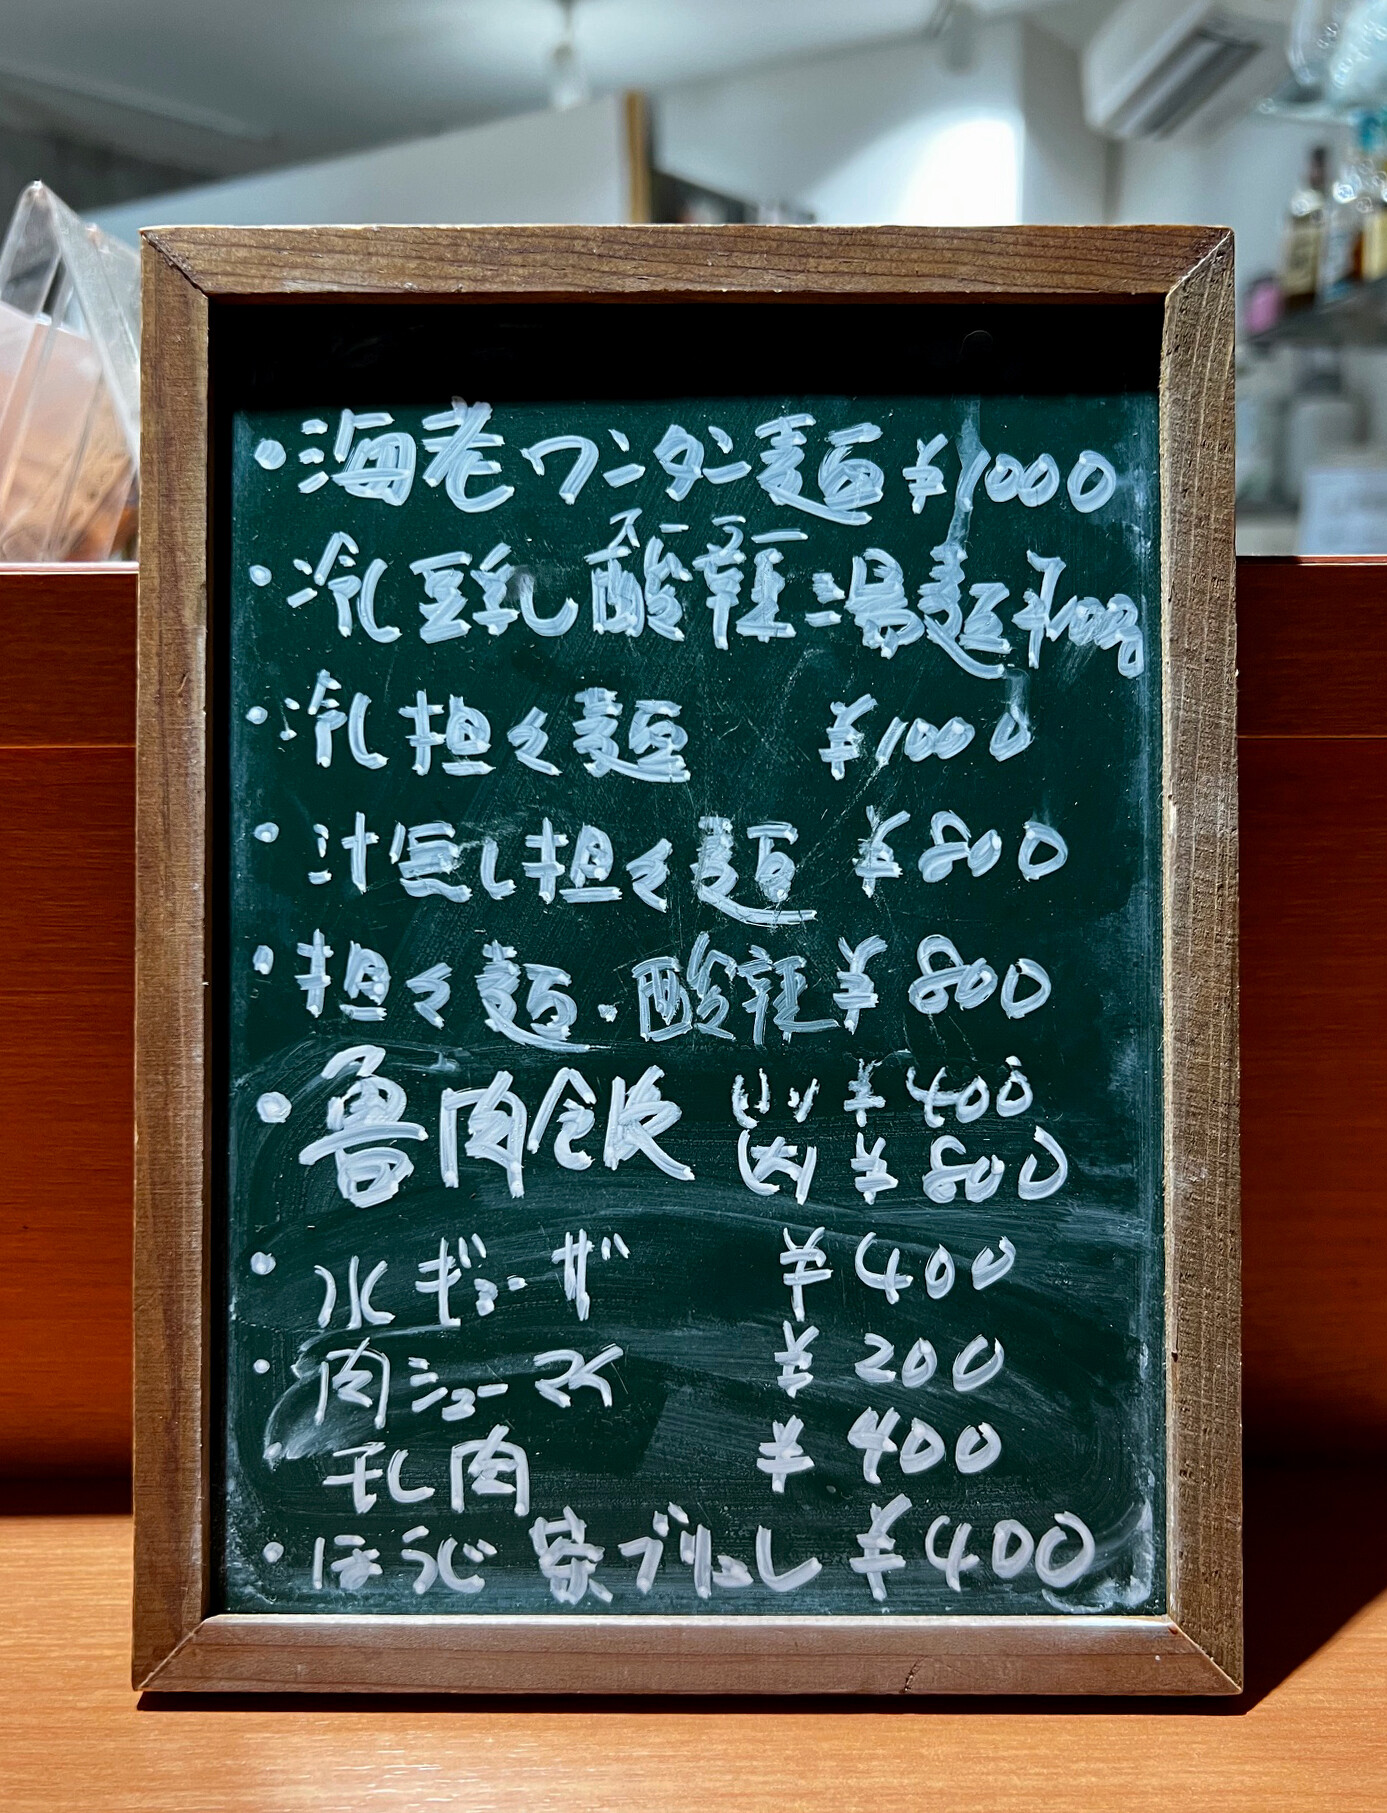 ・海老ワンタン麺 ¥1000
スーラー
・冷豆乳酸辣湯麺 ¥1000
・冷担々麺 ¥1000
・汁無し担々麺 ¥800
・担々麺・酸辣 ¥800
・魯肉飯 (小) ¥400
(大) ¥800
・水ギョーザ ¥400
・肉シューマイ ¥200
・干し肉 ¥400
・ほうじ茶ブリュレ ¥400